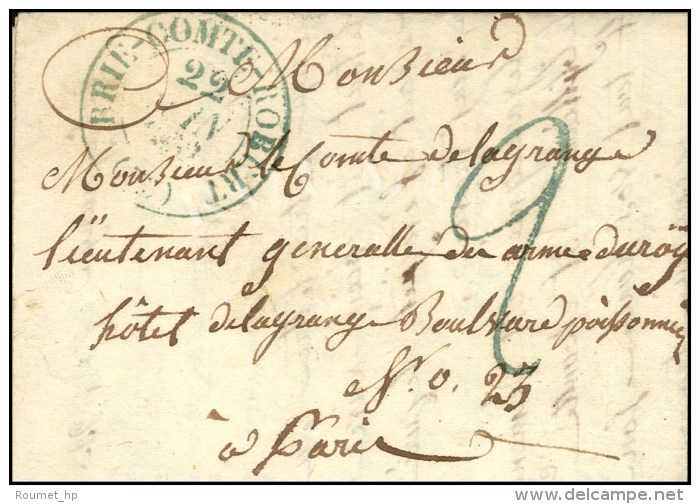 BRIE-COMTE-ROBERT
22
Monsieur
Monsieur le Comte delagrange
lieutenant generalle des armee duroÿ
hôtel delagrange Boulvare poissonnier
N.o. 23
à Paris
2
© Roumet_hp